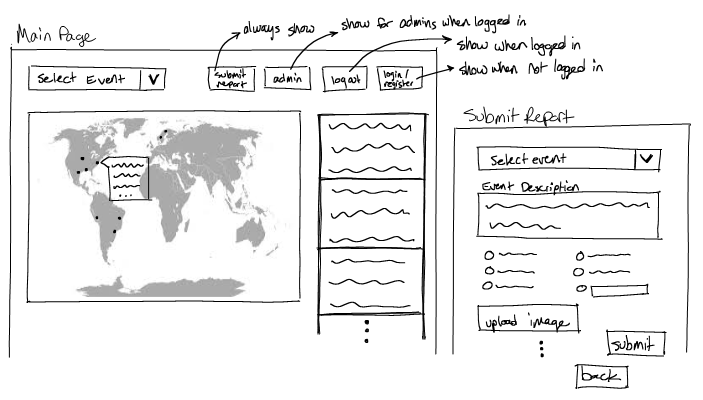 Main Page
always show
show for admins when logged in
show when logged in
show when not logged in
Select Event
submit report
admin
logout
login / register
Submit Report
Select event
Event Description
upload image
submit
back